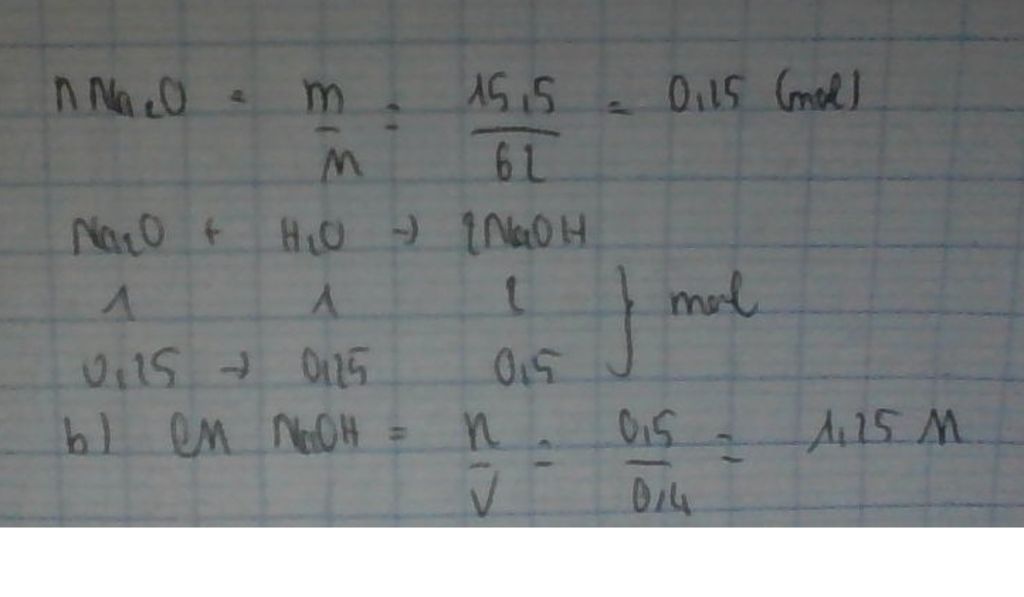 nNa2O = m/M = 15,5/62 = 0,25 (mol)
Na2O + H2O → 2NaOH
1 1 2 } mol
0,25 → 0,25 0,5
b) CM NaOH = n/V = 0,5/0,4 = 1,25 M